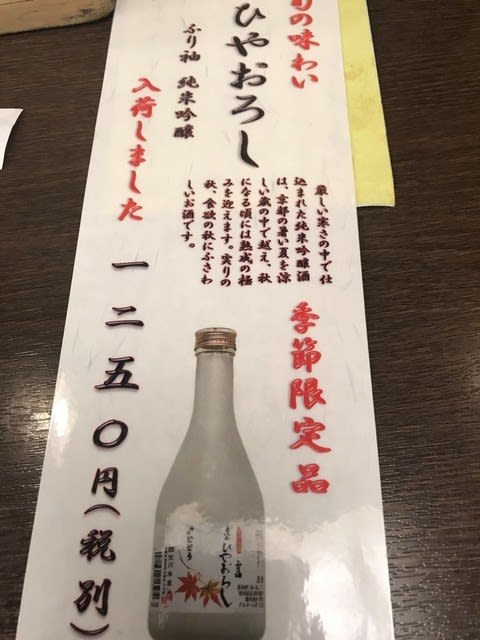 旬の味わい
ひやおろし
ふり袖 純米吟醸
入荷しました
厳しい寒さの中で仕
込まれた純米吟醸酒
は、京都の暑い夏を涼
しい蔵の中で越え、秋
になる頃には熟成の極
みを迎えます。実りの
秋、食欲の秋にふさわ
しいお酒です。
季節限定品
一二五〇円(税別)
ひやおろし